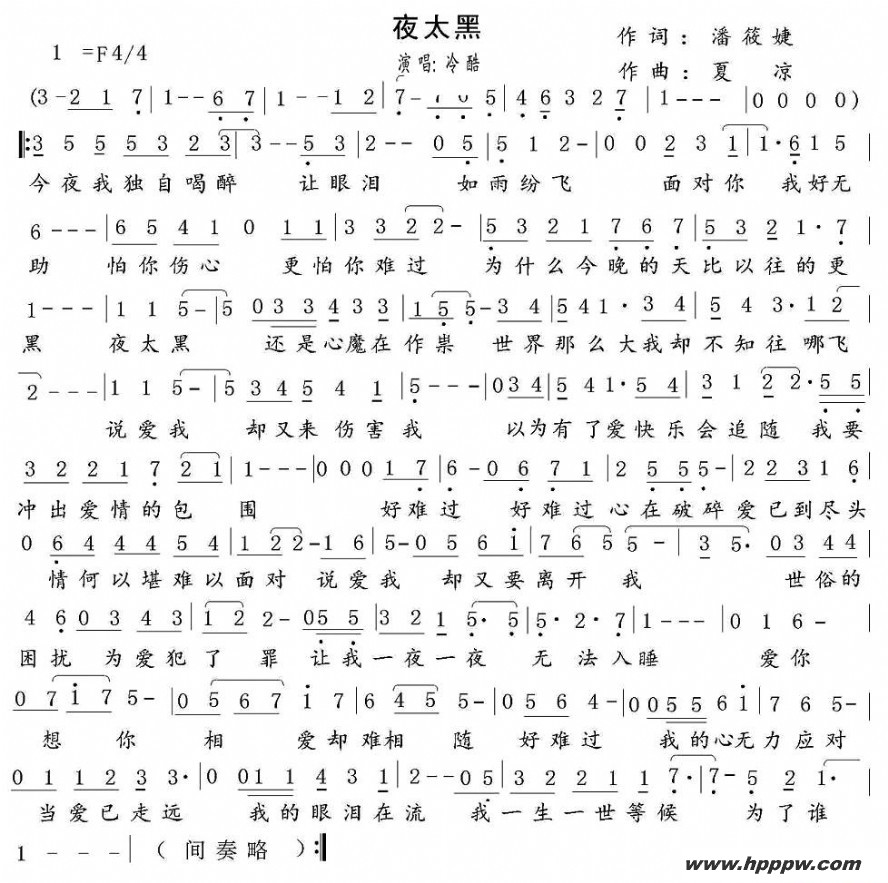 夜太黑
1 =F4/4
演唱: 冷酷
作词: 潘筱婕
作曲: 夏 凉
(3-217|1--67|1--12|7-- 5|46327|1---|0000)
|:3555323|3--53|2--05|512-|00231|1·615
今夜我独自喝醉 让眼泪 如雨纷飞 面对你 我好无
6---|6541011|3322-|5321767|5321·7
助 怕你伤心 更怕你难过 为什么今晚的天比以往的更
1---|115-|5033433|155-34|541·34|543·12
黑 夜太黑 还是心魔在作祟 世界那么大我却不知往哪飞
2---|115-|534541|5--034|541·54|3122·55
说爱我 却又来伤害我 以为有了爱快乐会追随 我要
3221721|1---|00017|6-0671|2555-|22316
冲出爱情的包围 好难过 好难过 心在破碎 爱已到尽头
0644454|122-16|5-0561|7655-|35·0344
情何以堪难以面对 说爱我 却又要离开我 世俗的
460343|122-055|3215·5|5·2·7|1---|016-
困扰 为爱犯了罪 让我一夜一夜 无法入睡 爱你
07175-|056717|6455-|0564-|0055617|765-
想你 相爱却难相随 好难过 我的心无力应对
011233·|0011431|2--05|322117·|7·521·|
当爱已走远 我的眼泪在流 我一生一世等候 为了谁
1---|(间奏略):|
www.hpppw.com